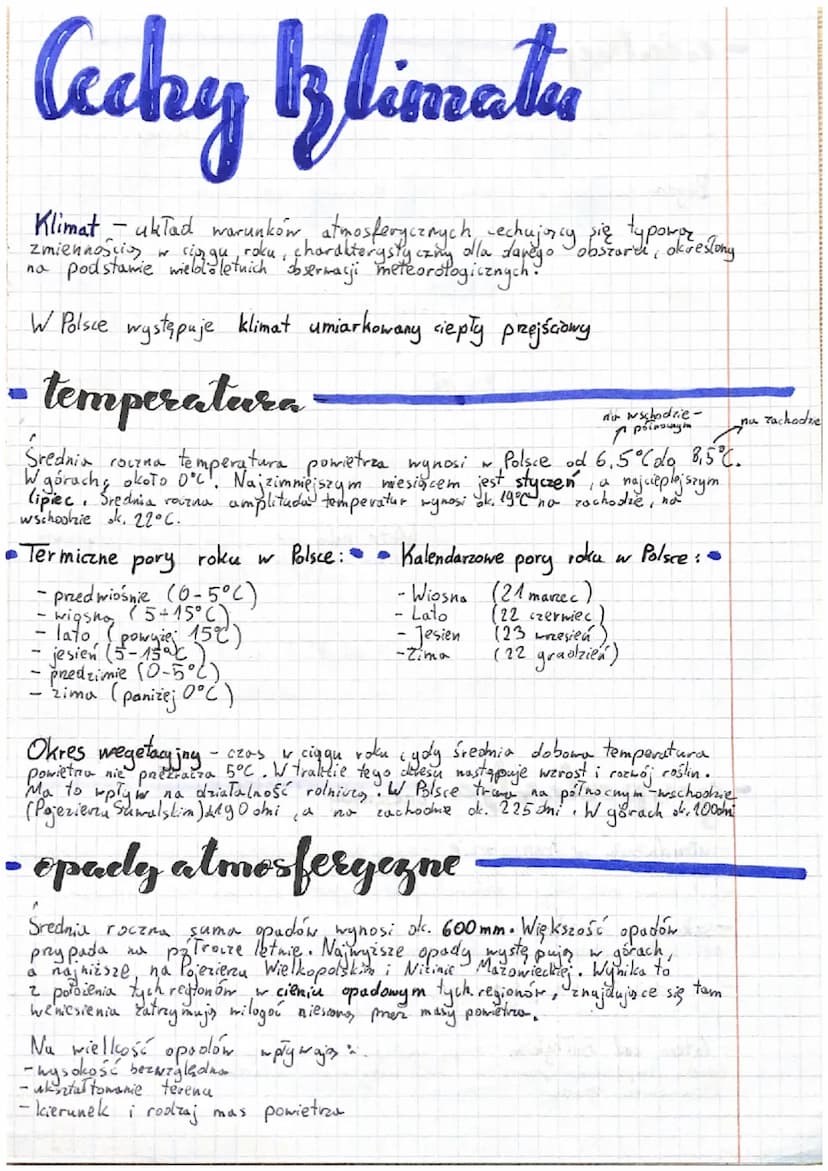 Cechy klimatu
Klimat – układ warunków atmosferycznych cechujący się typową
zmiennością w ciągu roku, charakterystyczny dla danego obszaru, określony
na podstawie wieloletnich obserwacji meteorologicznych.
W Polsce występuje klimat umiarkowany ciepły przejściowy
temperatura
na wschodzie – północnym
na zachodzie
Średnia roczna temperatura powietrza wynosi w Polsce od 6,5°C do 8,5°C.
W górach, około 0°C. Najzimniejszym miesiącem jest styczeń, a najcieplejszym
lipiec. Średnia roczna amplituda temperatur wynosi ok. 19°C na zachodzie, na
wschodzie ok. 22°C.
• Termiczne pory roku w Polsce: •
- przedwiośnie (0-5°C)
- wiosna (5÷15°C)
- lato (powyżej 15°C)
- jesień (5-15°C)
- przedzimie (0-5°C)
- zima (paniżej 0°C)
• Kalendarzowe pory roku w Polsce: •
- Wiosna (21 marzec)
- Lato (22 czerwiec)
- Jesien (23 wrzesień)
- Zima (22 grudzień)
Okres wegetacyjny – czas w ciągu roku, gdy średnia dobowa temperatura
powietrza nie przekracza 5°C. W trakcie tego okresu następuje wzrost i rozwój roślin.
Ma to wpływ na działalność rolniczą. W Polsce trwa na północnym-wschodzie
(Pojezierzu Suwalskim) 190 dni, a na zachodzie ok. 225 dni. W górach ok. 100 dni
opady atmosferyczne
Średnia roczna suma opadów wynosi ok. 600 mm. Większość opadów
przypada na półrocze letnie. Najwyższe opady występują w górach,
a najniższe na Pojezierzu Wielkopolskim i Nizinie Mazowieckiej. Wynika to
z położenia tych regionów w cieniu opadowym tych regionów, znajdujące się tam
wzniesienia zatrzymują wilgoć niesioną przez masy powietrza.
Na wielkość opadów wpływają:
- wysokość bezwzględna
- ukształtowanie terenu
- kierunek i rodzaj mas powietrza